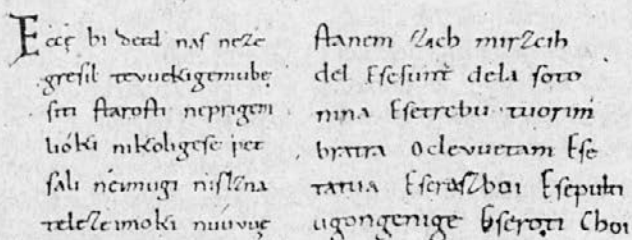 Eccę bi detd naſ neze
greſil tevuekigemube
ſiti ſtaroſti neprigem
lióki nikoligeſe pet
ſali neimugi niſlzna
teleze imoki nuúvuę
ſtanem zich mirzcih
del Eſeſunt dela ſoto
nina Eſetrebu tuorim
bratra Oclevuetam Eſe
tatua Eſerazboi Eſepulti
ugongenige Eſeroti Choi